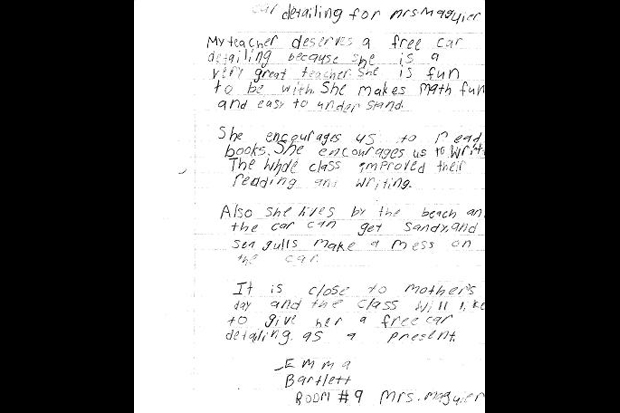 car detailing for mrs. Maguier
My teacher deserves a free car
detailing because she is a
very great teacher. She is fun
to be with. She makes math fun
and easy to understand.
She encourages us to read
books. She encourages us to writ
The whole class improved their
reading and writing.
Also she lives by the beach an
the car can get sandy and
sea gulls make a mess on
the car.
It is close to mother's
day and the class will like
to give her a free car
detailing as a present.
Emma
Bartlett
ROOM #9 Mrs. Maguier